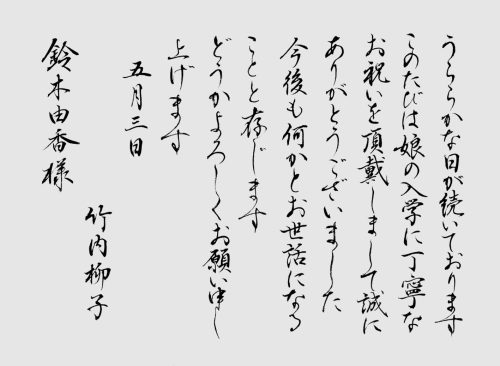 うららかな日が続いております
このたびは娘の入学に丁寧な
お祝いを頂戴しまして誠に
ありがとうございました
今後も何かとお世話になる
ことと存じます
どうかよろしくお願い申し
上げます
五月三日
竹内柳子
鈴木由香様